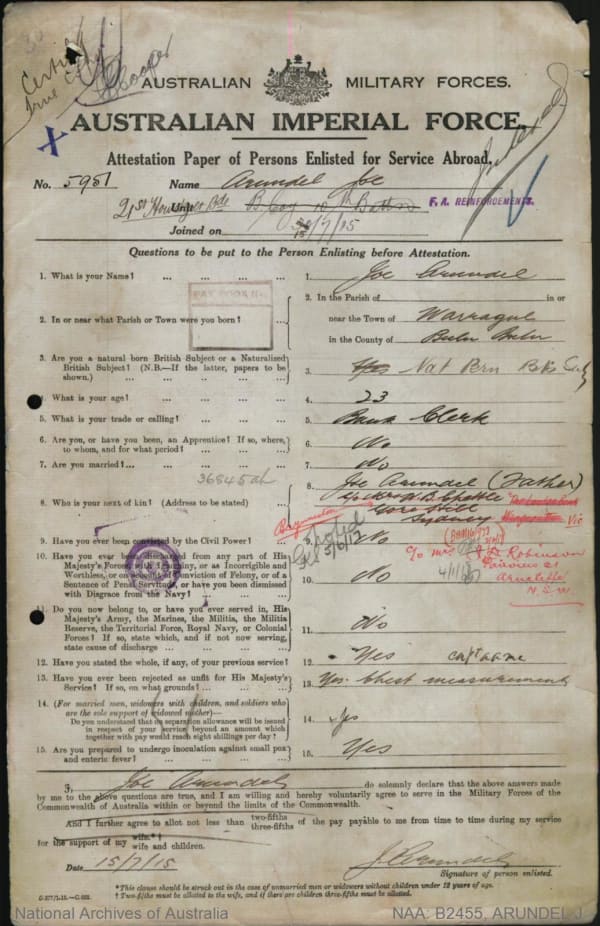 Certified
True Copy
Cooper
AUSTRALIAN MILITARY FORCES.
AUSTRALIAN IMPERIAL FORCE.
Attestation Paper of Persons Enlisted for Service Abroad.
No. 5951 Name Arundel Joe
21st Howitzer Bde Unit B Coy 10th Battn F.A. REINFORCEMENTS.
Joined on 15/7/15
Questions to be put to the Person Enlisting before Attestation.
1. What is your Name? ... ... ... 1. Joe Arundel
2. In or near what Parish or Town were you born? ... 2. In the Parish of in or
near the Town of Warragul
in the County of Buln Buln
3. Are you a natural born British Subject or a Naturalized British Subject? (N.B.—If the latter, papers to be shown.) ... ... ... ... 3. Yes Nat Brn
4. What is your age? ... ... ... 4. 23
5. What is your trade or calling? ... ... 5. Bank Clerk
6. Are you, or have you been, an Apprentice? If so, where, to whom, and for what period? ... ... 6. No
7. Are you married? ... ... ... ... 7. No
36845
8. Who is your next of kin? (Address to be stated) ... 8. Joe Arundel (Father)
Gore Hill
Sydney
Vic
To Mrs Robinson
Arncliffe
N.S.W
9. Have you ever been convicted by the Civil Power? ... 9. No
10. Have you ever been discharged from any part of His Majesty's Forces, with Ignominy, or as Incorrigible and Worthless, or on account of Conviction of Felony, or of a Sentence of Penal Servitude, or have you been dismissed with Disgrace from the Navy? ... ... 10. No
11. Do you now belong to, or have you ever served in, His Majesty's Army, the Marines, the Militia, the Militia Reserve, the Territorial Force, Royal Navy, or Colonial Forces? If so, state which, and if not now serving, state cause of discharge ... ... ... 11. No
12. Have you stated the whole, if any, of your previous service? 12. Yes
13. Have you ever been rejected as unfit for His Majesty's Service? If so, on what grounds? ... ... 13. Yes. Chest measurement
14. (For married men, widowers with children, and soldiers who are the sole support of widowed mother)—
Do you understand that no separation allowance will be issued in respect of your service beyond an amount which together with pay would reach eight shillings per day? 14.
15. Are you prepared to undergo inoculation against small pox and enteric fever? ... ... ... 15. Yes
I, Joe Arundel do solemnly declare that the above answers made
by me to the above questions are true, and I am willing and hereby voluntarily agree to serve in the Military Forces of the
Commonwealth of Australia within or beyond the limits of the Commonwealth.
And I further agree to allot not less than two-fifths three-fifths of the pay payable to me from time to time during my service
for the support of my wife.*† wife and children.
Date 15/7/15 J. Arundel
Signature of person enlisted.
*This clause should be struck out in the case of unmarried men or widowers without children under 18 years of age.
† Two-fifths must be allotted to the wife, and if there are children three-fifths must be allotted.
National Archives of Australia NAA: B2455, ARUNDEL J